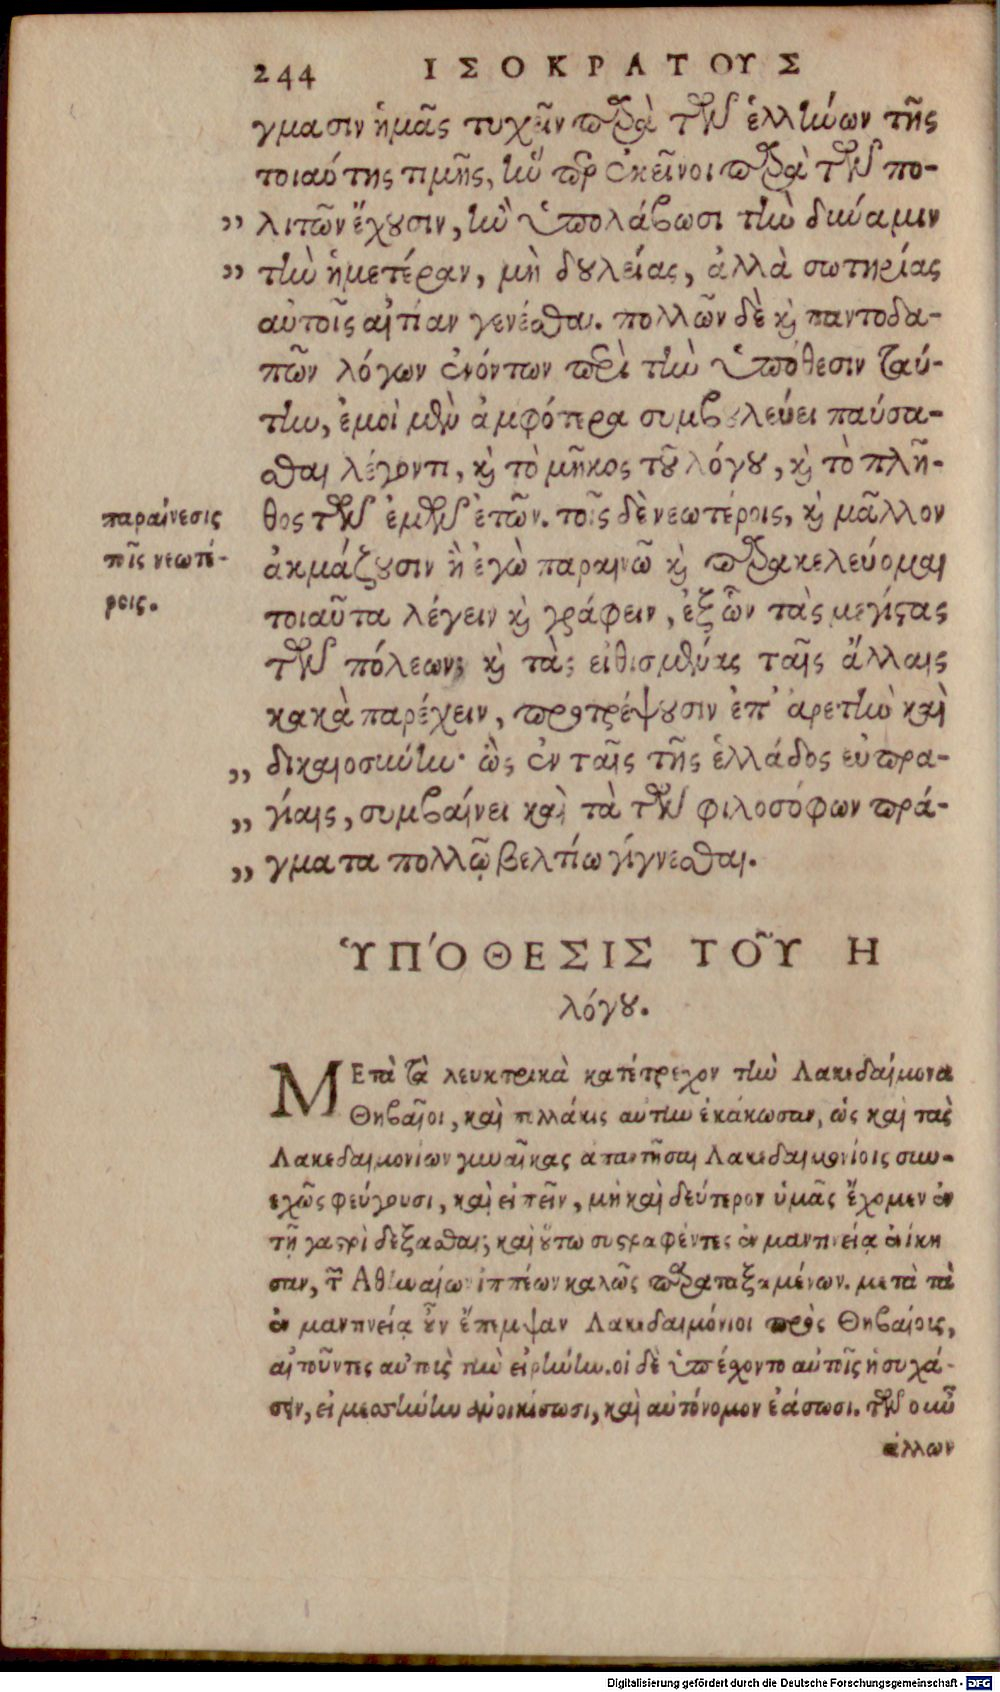 244 ΙΣΟΚΡΑΤΟΥΣ
γμασιν ἡμᾶς τυχεῖν παρὰ τῶν ἑλλήνων τῆς
τοιαύτης τιμῆς, ἥν περ ἐκεῖνοι παρὰ τῶν πο-
„ λιτῶν ἔχουσιν, ἢν ὑπολάβωσι τὴν δύναμιν
„ τὴν ἡμετέραν, μὴ δουλείας, ἀλλὰ σωτηρίας
αὐτοῖς αἰτίαν γενέσθαι. πολλῶν δὲ καὶ παντοδα-
πῶν λόγων ἐνόντων περὶ τὴν ὑπόθεσιν ταύ-
την, ἐμοὶ μὲν ἀμφότερα συμβουλεύει παύσα-
σθαι λέγοντι, καὶ τὸ μῆκος τοῦ λόγου, καὶ τὸ πλῆ-
θος τῶν ἐμῶν ἐτῶν. τοῖς δὲ νεωτέροις, καὶ μᾶλλον
ἀκμάζουσιν ἢ ἐγὼ παραινῶ καὶ παρακελεύομαι
τοιαῦτα λέγειν καὶ γράφειν, ἐξ ὧν τὰς μεγίστας
τῶν πόλεων, καὶ τὰς εἰθισμένας ταῖς ἄλλαις
κακὰ παρέχειν, προτρέψουσιν ἐπ' ἀρετὴν καὶ
„ δικαιοσύνην· ὡς ἐν ταῖς τῆς ἑλλάδος εὐπρα-
„ γίαις, συμβαίνει καὶ τὰ τῶν φιλοσόφων πρά-
„ γματα πολλῷ βελτίω γίγνεσθαι.
παραίνεσις
τοῖς νεωτέ-
ροις.
ὙΠΌΘΕΣΙΣ ΤΟῦΥ Η
λόγου.
ΜΕτὰ τὰ λευκτρικὰ κατέτρεχον τὴν Λακεδαίμονα
Θηβαῖοι, καὶ πολλάκις αὐτὴν ἐκάκωσαν, ὡς καὶ τὰς
Λακεδαιμονίων γυναῖκας ἀπαντῆσαι Λακεδαιμονίοις συν-
εχῶς φεύγουσι, καὶ εἰπεῖν, μὴ καὶ δεύτερον ὑμᾶς ἔχομεν ἐν
τῇ γαστρὶ δέξασθαι; καὶ οὕτω συστραφέντες ἐν μαντινείᾳ ἐνίκη
σαν, τῶν Ἀθηναίων ἱππέων καλῶς παραταξαμένων. μετὰ τὰ
ἐν μαντινείᾳ οὖν ἔπεμψαν Λακεδαιμόνιοι πρὸς Θηβαίοις,
αἰτοῦντες αὐτοὺς τὴν εἰρήνην. οἱ δὲ ὑπέσχοντο αὐτοῖς ἡσυχά-
σειν, εἰ μεσσήνην ἀνοικίσωσι, καὶ αὐτόνομον ἐάσωσι. τῶν οὖν
ἄλλων
Digitalisierung gefördert durch die Deutsche Forschungsgemeinschaft - DFG